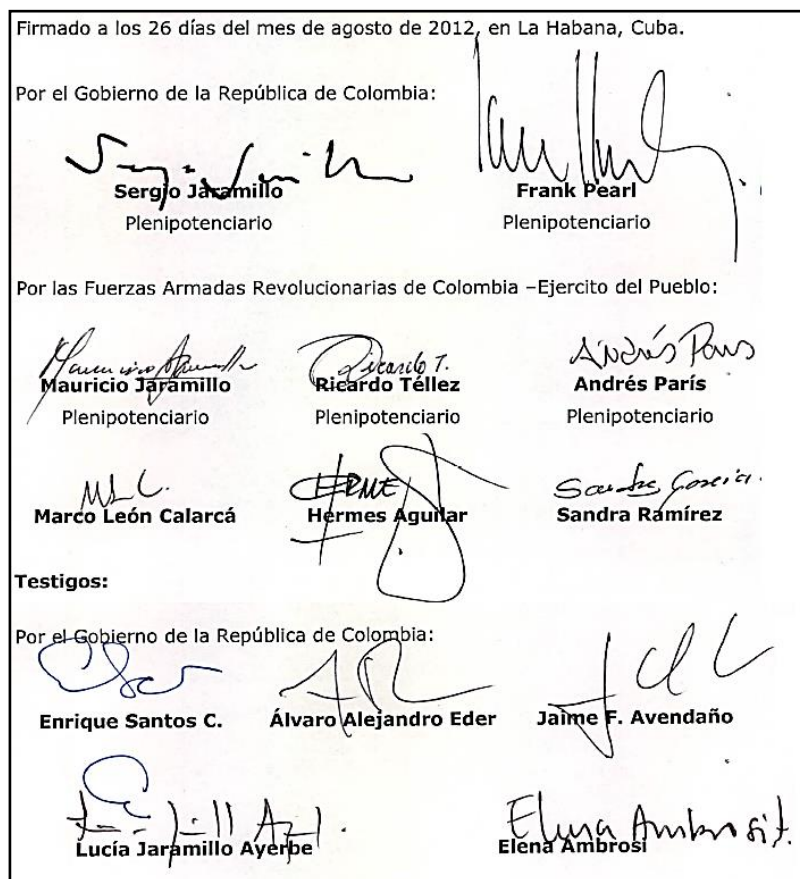 Firmado a los 26 días del mes de agosto de 2012, en La Habana, Cuba.
Por el Gobierno de la República de Colombia:
Sergio Jaramillo Frank Pearl
Plenipotenciario Plenipotenciario
Por las Fuerzas Armadas Revolucionarias de Colombia –Ejercito del Pueblo:
Ricardo T. Andrés París
Mauricio Jaramillo Ricardo Téllez Andrés París
Plenipotenciario Plenipotenciario Plenipotenciario
HERME
Marco León Calarcá Hermes Aguilar Sandra Ramírez
Testigos:
Por el Gobierno de la República de Colombia:
Enrique Santos C. Álvaro Alejandro Eder Jaime F. Avendaño
Elena Ambrosi
Lucía Jaramillo Ayerbe Elena Ambrosi